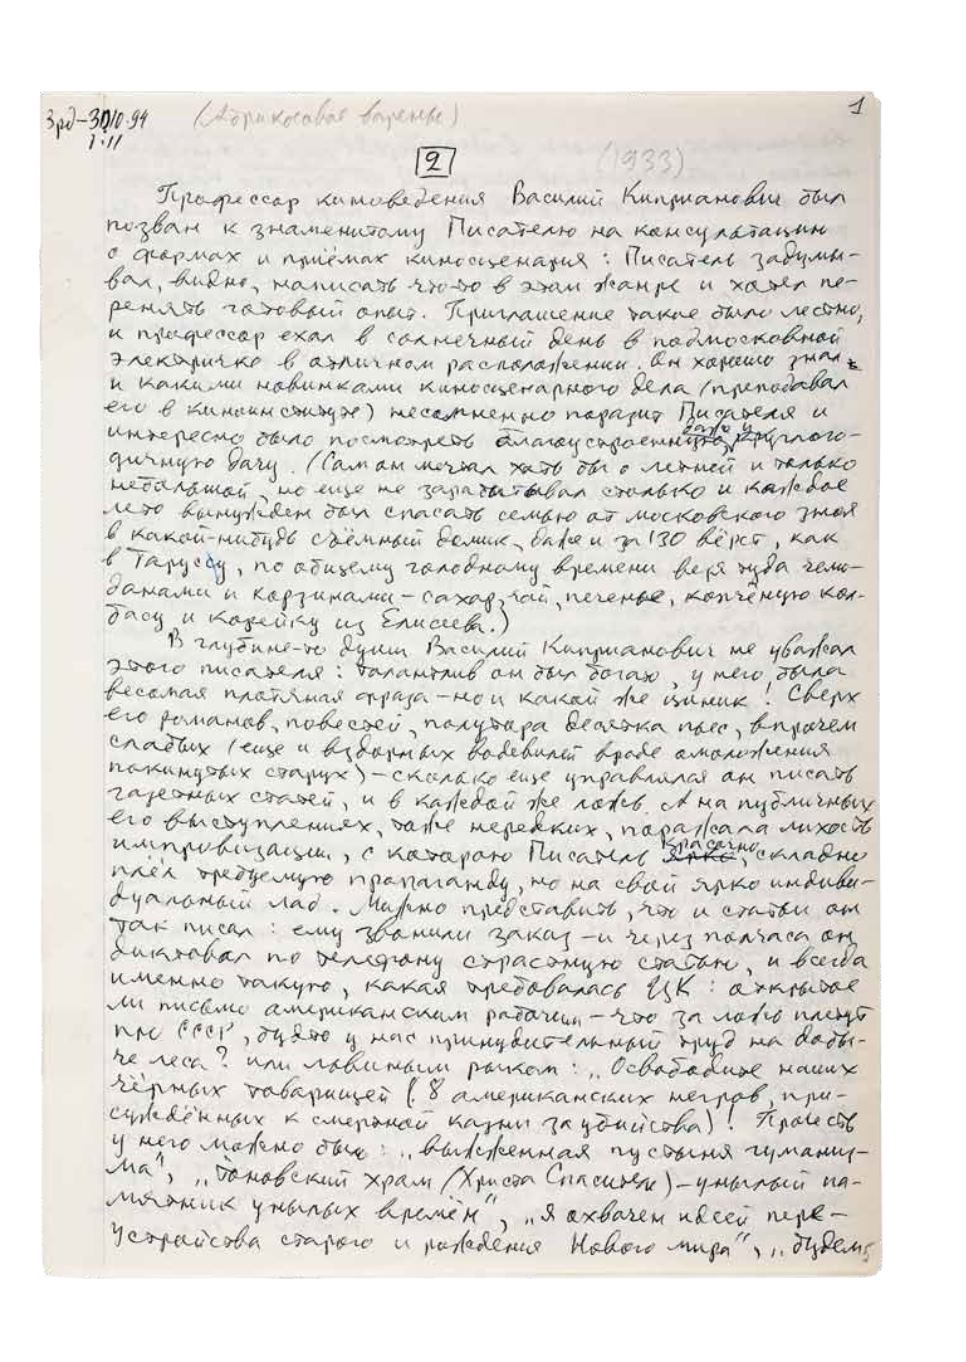 3рд–30.10.94
(Абрикосовое варенье)
1
1·11
2
(1933)
Профессор киноведения Василий Киприанович был
позван к знаменитому Писателю на консультацию
о формах и приёмах киносценария: Писатель задумы-
вал, видно, написать что-то в этом жанре и хотел пе-
ренять готовый опыт. Приглашение такое было лестно,
и профессор ехал в солнечный день в подмосковной
электричке в отличном расположении. Он хорошо знал
и какими новинками киносценарного дела (преподавал
его в киноинституте) несомненно поразит Писателя и
интересно было посмотреть благоустроенную круглого-
дичную дачу. (Сам он мечтал хоть бы о летней и только
небольшой, но ещё не зарабатывал столько и каждое
лето вынужден был спасать семью от московского зноя
в какой-нибудь съёмный домик, даже и за 130 вёрст, как
в Тарусу, по общему голодному времени везя туда чемо-
данами и корзинами – сахар, чай, печенье, копчёную кол-
басу и корейку из Елисеева.)
В глубине-то души Василий Киприанович не уважал
этого писателя: талантлив он был богато, у него была
весомая плотяная фраза – но и какой же циник! Сверх
его романов, повестей, полутора десятка пьес, впрочем
слабых (ещё и вздорных водевилей вроде омоложения
покинутых старух) – сколько ещё управлялся он писать
газетных статей, и в каждой же ложь. А на публичных
его выступлениях, тоже нередких, поражала лихость
импровизации, с которою Писатель красочно, складно
плёл требуемую пропаганду, но на свой ярко индиви-
дуальный лад. Можно представить, что и статьи он
так писал: ему звонили заказ – и через полчаса он
диктовал по телефону страстную статью, и всегда
именно такую, какая требовалась ЦК: открытое
ли письмо американским рабочим – что за ложь плетут
про СССР, будто у нас принудительный труд на добы-
че леса? или львиным рыком: „Освободите наших
чёрных товарищей (8 американских негров, при-
суждённых к смертной казни за убийства)! Прочесть
у него можно было: „выжженная пустыня гуманиз-
ма", „тоновский храм (Христа Спасителя) – унылый па-
мятник унылых времён", „я охвачен идеей пере-
устройства старого и рождения Нового мира", „будем